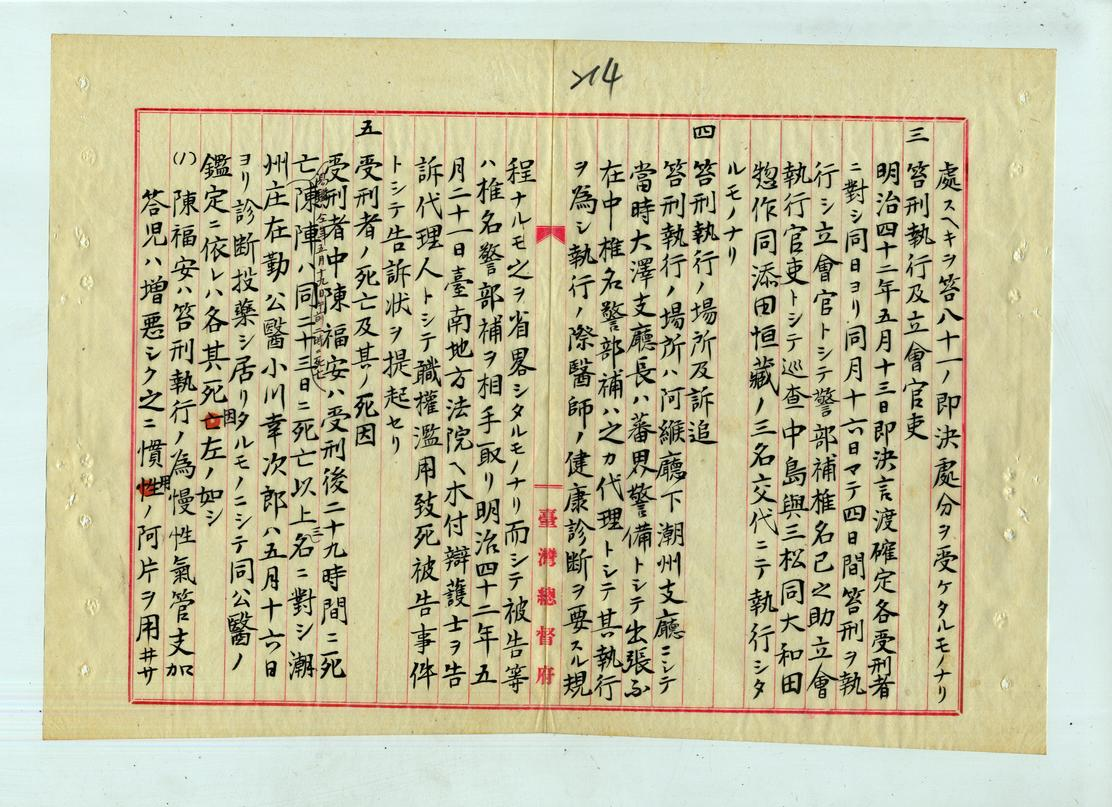 214
處スヘキヲ笞八十一ノ即決處分ヲ受ケタルモノナリ
三 笞刑執行及立會官吏
明治四十二年五月十三日即決言渡確定各受刑者
ニ對シ同日ヨリ同月十六日マテ四日間笞刑ヲ執
行シ立會官トシテ警部補椎名己之助立會
執行官吏トシテ巡查中島與三松同大和田
惣作同添田恒藏ノ三名交代ニテ執行シタ
ルモノナリ
四 笞刑執行ノ場所及訴追
笞刑執行ノ場所ハ阿緱廳下潮州支廳ニシテ
當時大澤支廳長ハ蕃界警備トシテ出張不
在中椎名警部補ハ之カ代理トシテ其執行
ヲ為シ執行ノ際醫師ノ健康診斷ヲ要スル規
臺灣總督府
程ナルモ之ヲ省畧シタルモノナリ而シテ被告等
ハ椎名警部補ヲ相手取リ明治四十二年五
月二十一日臺南地方法院ヘ木付辯護士ヲ告
訴代理人トシテ職權濫用致死被告事件
トシテ告訴狀ヲ提起セリ
五 受刑者ノ死亡及其ノ死因
受刑者中陳福安ハ受刑後二十九時間ニ死
亡陳陣ハ同二十三日ニ死亡以上三名ニ對シ潮
州庄在勤公醫小川幸次郎ハ五月十六日
ヨリ診斷投藥シ居リタルモノニシテ同公醫ノ
鑑定ニ依レハ各其死因左ノ如シ
(ハ) 陳福安ハ笞刑執行ノ為慢性氣管支加
答児ハ増惡シク之ニ慣用ノ阿片ヲ用井サ